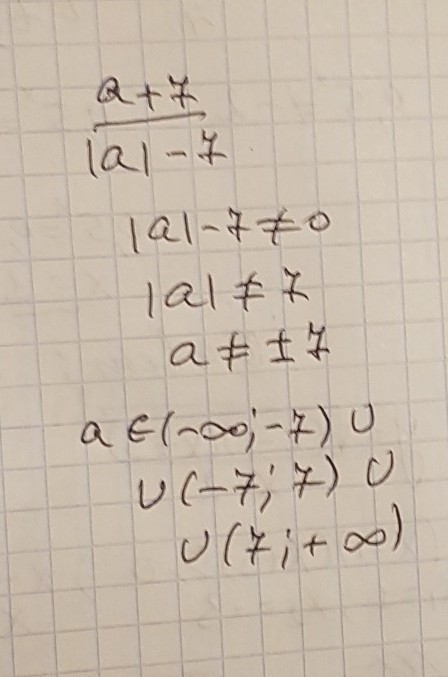 a+7
|a|-7
|a|-7≠0
|a|≠7
a≠±7
a∈(-∞;-7)∪
∪(-7;7)∪
∪(7;+∞)